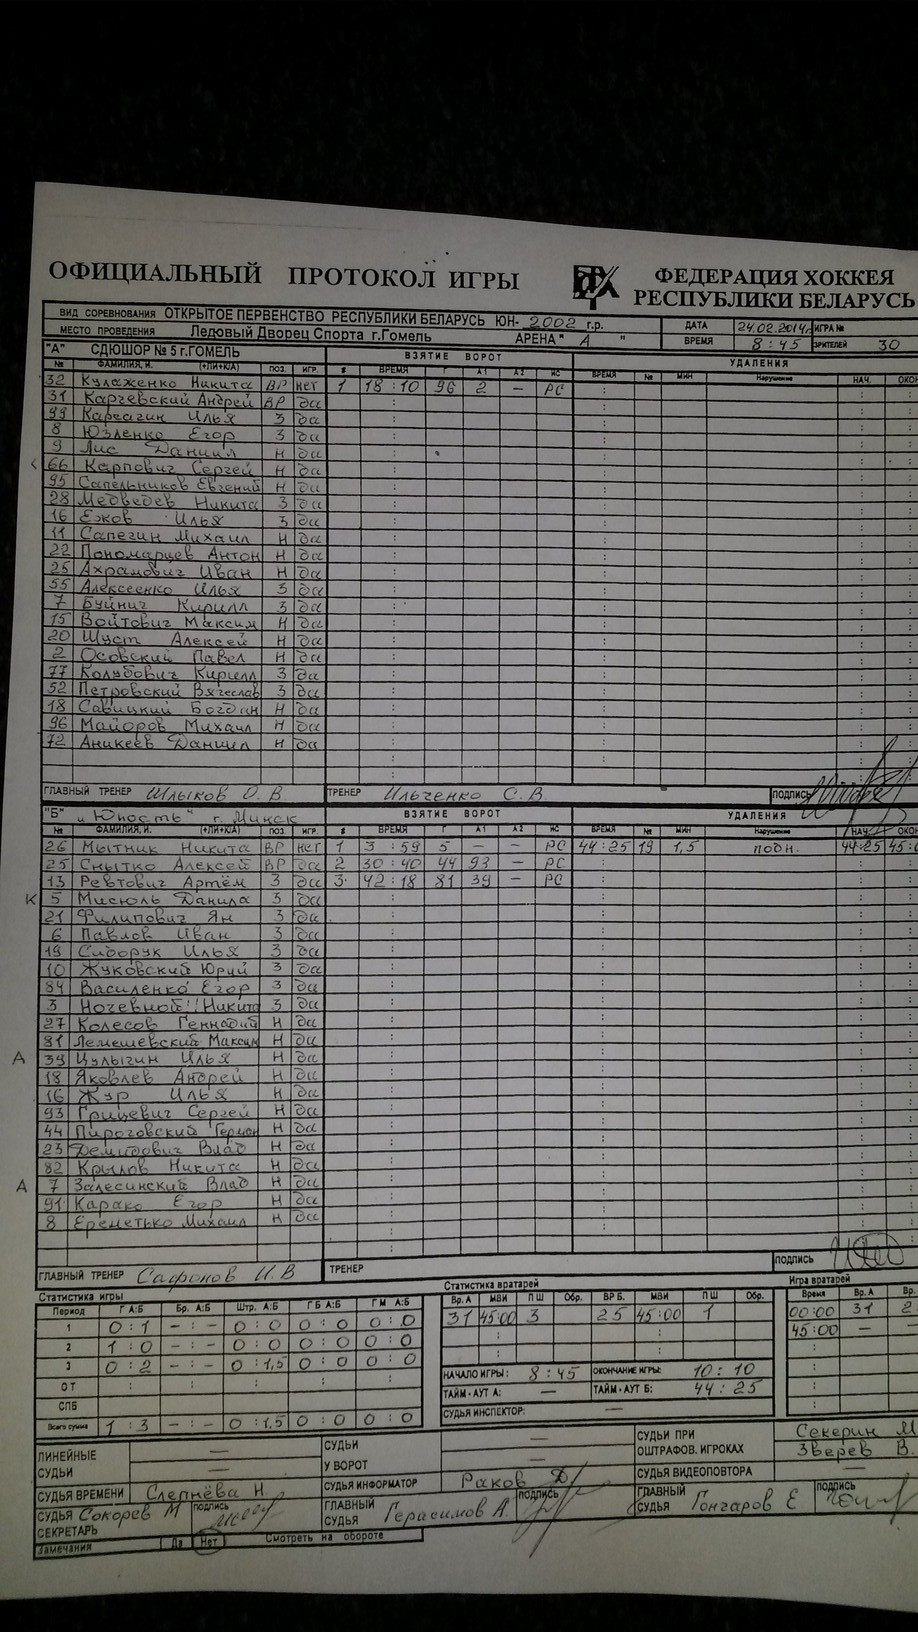 ОФИЦИАЛЬНЫЙ ПРОТОКОЛ ИГРЫ
ФЕДЕРАЦИЯ ХОККЕЯ
РЕСПУБЛИКИ БЕЛАРУСЬ
ВИД СОРЕВНОВАНИЯ ОТКРЫТОЕ ПЕРВЕНСТВО РЕСПУБЛИКИ БЕЛАРУСЬ ЮН- 2002 г.р. ДАТА 24.02.2014г ИГРА №
МЕСТО ПРОВЕДЕНИЯ Ледовый Дворец Спорта г.Гомель АРЕНА " А " ВРЕМЯ 8:45 ЗРИТЕЛЕЙ 30
"А" СДЮШОР № 5 г.ГОМЕЛЬ ВЗЯТИЕ ВОРОТ УДАЛЕНИЯ
№ ФАМИЛИЯ, И. (+ЛИ+К/А) ПОЗ. ИГР. # ВРЕМЯ Г А1 А2 ИС ВРЕМЯ № МИН Нарушение НАЧ.
32 Кулаженко Никита ВР нет 1 18:10 96 2 – РС
31 Карчевский Андрей ВР да
99 Карсагин Илья З да
8 Юзленко Егор З да
9 Лис Даниил Н да
66 Карпович Сергей Н да
95 Сапельников Евгений Н да
28 Медведев Никита З да
16 Ежов Илья З да
11 Сапегин Михаил Н да
22 Пономарцев Антон Н да
25 Ахрамович Иван Н да
55 Алексеенко Илья З да
7 Буйнич Кирилл З да
15 Войтович Максим Н да
20 Шуст Алексей Н да
2 Осовский Павел Н да
77 Колубович Кирилл З да
52 Петровский Вячеслав З да
18 Савицкий Богдан Н да
96 Майоров Михаил Н да
72 Аникеев Даниил Н да
ГЛАВНЫЙ ТРЕНЕР Шлыков О. В. ТРЕНЕР Ильченко С. В. ПОДПИСЬ
"Б" "Юность" г. Минск ВЗЯТИЕ ВОРОТ УДАЛЕНИЯ
№ ФАМИЛИЯ, И. (+ЛИ+К/А) ПОЗ. ИГР. # ВРЕМЯ Г А1 А2 ИС ВРЕМЯ № МИН Нарушение НАЧ.
26 Мытник Никита ВР нет 1 3:59 5 – – РС 44:25 19 1,5 подн. 44:25
25 Снытко Алексей ВР да 2 30:40 44 93 – РС
13 Ревтович Артём З да 3 42:18 81 39 – РС
К 5 Мисюль Данила З да
21 Филипович Ян З да
6 Павлов Иван З да
19 Сидорук Илья З да
10 Жуковский Юрий З да
84 Василенко Егор З да
3 Ночевной Никита З да
27 Колесов Геннадий Н да
81 Лемешевский Максим Н да
А 39 Цулыгин Илья Н да
18 Яковлев Андрей Н да
16 Жур Илья Н да
93 Грицевич Сергей Н да
44 Пироговский Герман Н да
23 Демидович Влад Н да
82 Крылов Никита Н да
А 7 Залесинский Влад Н да
91 Карако Егор Н да
8 Еременько Михаил Н да
ГЛАВНЫЙ ТРЕНЕР Сафонов И. В ТРЕНЕР ПОДПИСЬ
Статистика игры Статистика вратарей Игра вратарей
Период Г А:Б Бр. А:Б Штр. А:Б Г Б А:Б Г М А:Б Вр. А МВИ П Ш Обр. ВР Б. МВИ П Ш Обр. Время Вр. А
1 0:1 -:- 0:0 0:0 0:0 31 45:00 3 25 45:00 1 00:00 31
2 1:0 -:- 0:0 0:0 0:0 45:00 –
3 0:2 -:- 0:1,5 0:0 0:0 НАЧАЛО ИГРЫ: 8:45 ОКОНЧАНИЕ ИГРЫ: 10:10
ОТ ТАЙМ-АУТ А: — ТАЙМ-АУТ Б: 44:25
СПБ СУДЬЯ ИНСПЕКТОР: —
Всего сумма 1:3 -:- 0:1,5 0:0 0:0
ЛИНЕЙНЫЕ СУДЬИ — СУДЬИ У ВОРОТ — СУДЬИ ПРИ ОШТРАФОВ. ИГРОКАХ Секерин М
Зверев В.
СУДЬЯ ВРЕМЕНИ Слепнёва Н. СУДЬЯ ИНФОРМАТОР Раков Д. СУДЬЯ ВИДЕОПОВТОРА —
СУДЬЯ СЕКРЕТАРЬ Сокорев М ПОДПИСЬ ГЛАВНЫЙ СУДЬЯ Герасимов А. ПОДПИСЬ ГЛАВНЫЙ СУДЬЯ Гончаров Е ПОДПИСЬ
Замечания Да Нет Смотреть на обороте